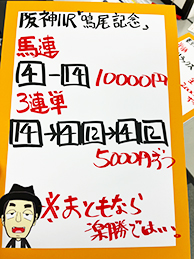 阪神11R「鳴尾記念」
馬連
4-14 10000円
3連単
14→4 12→4 12
5000円ずつ
※まともなら
楽勝では…!